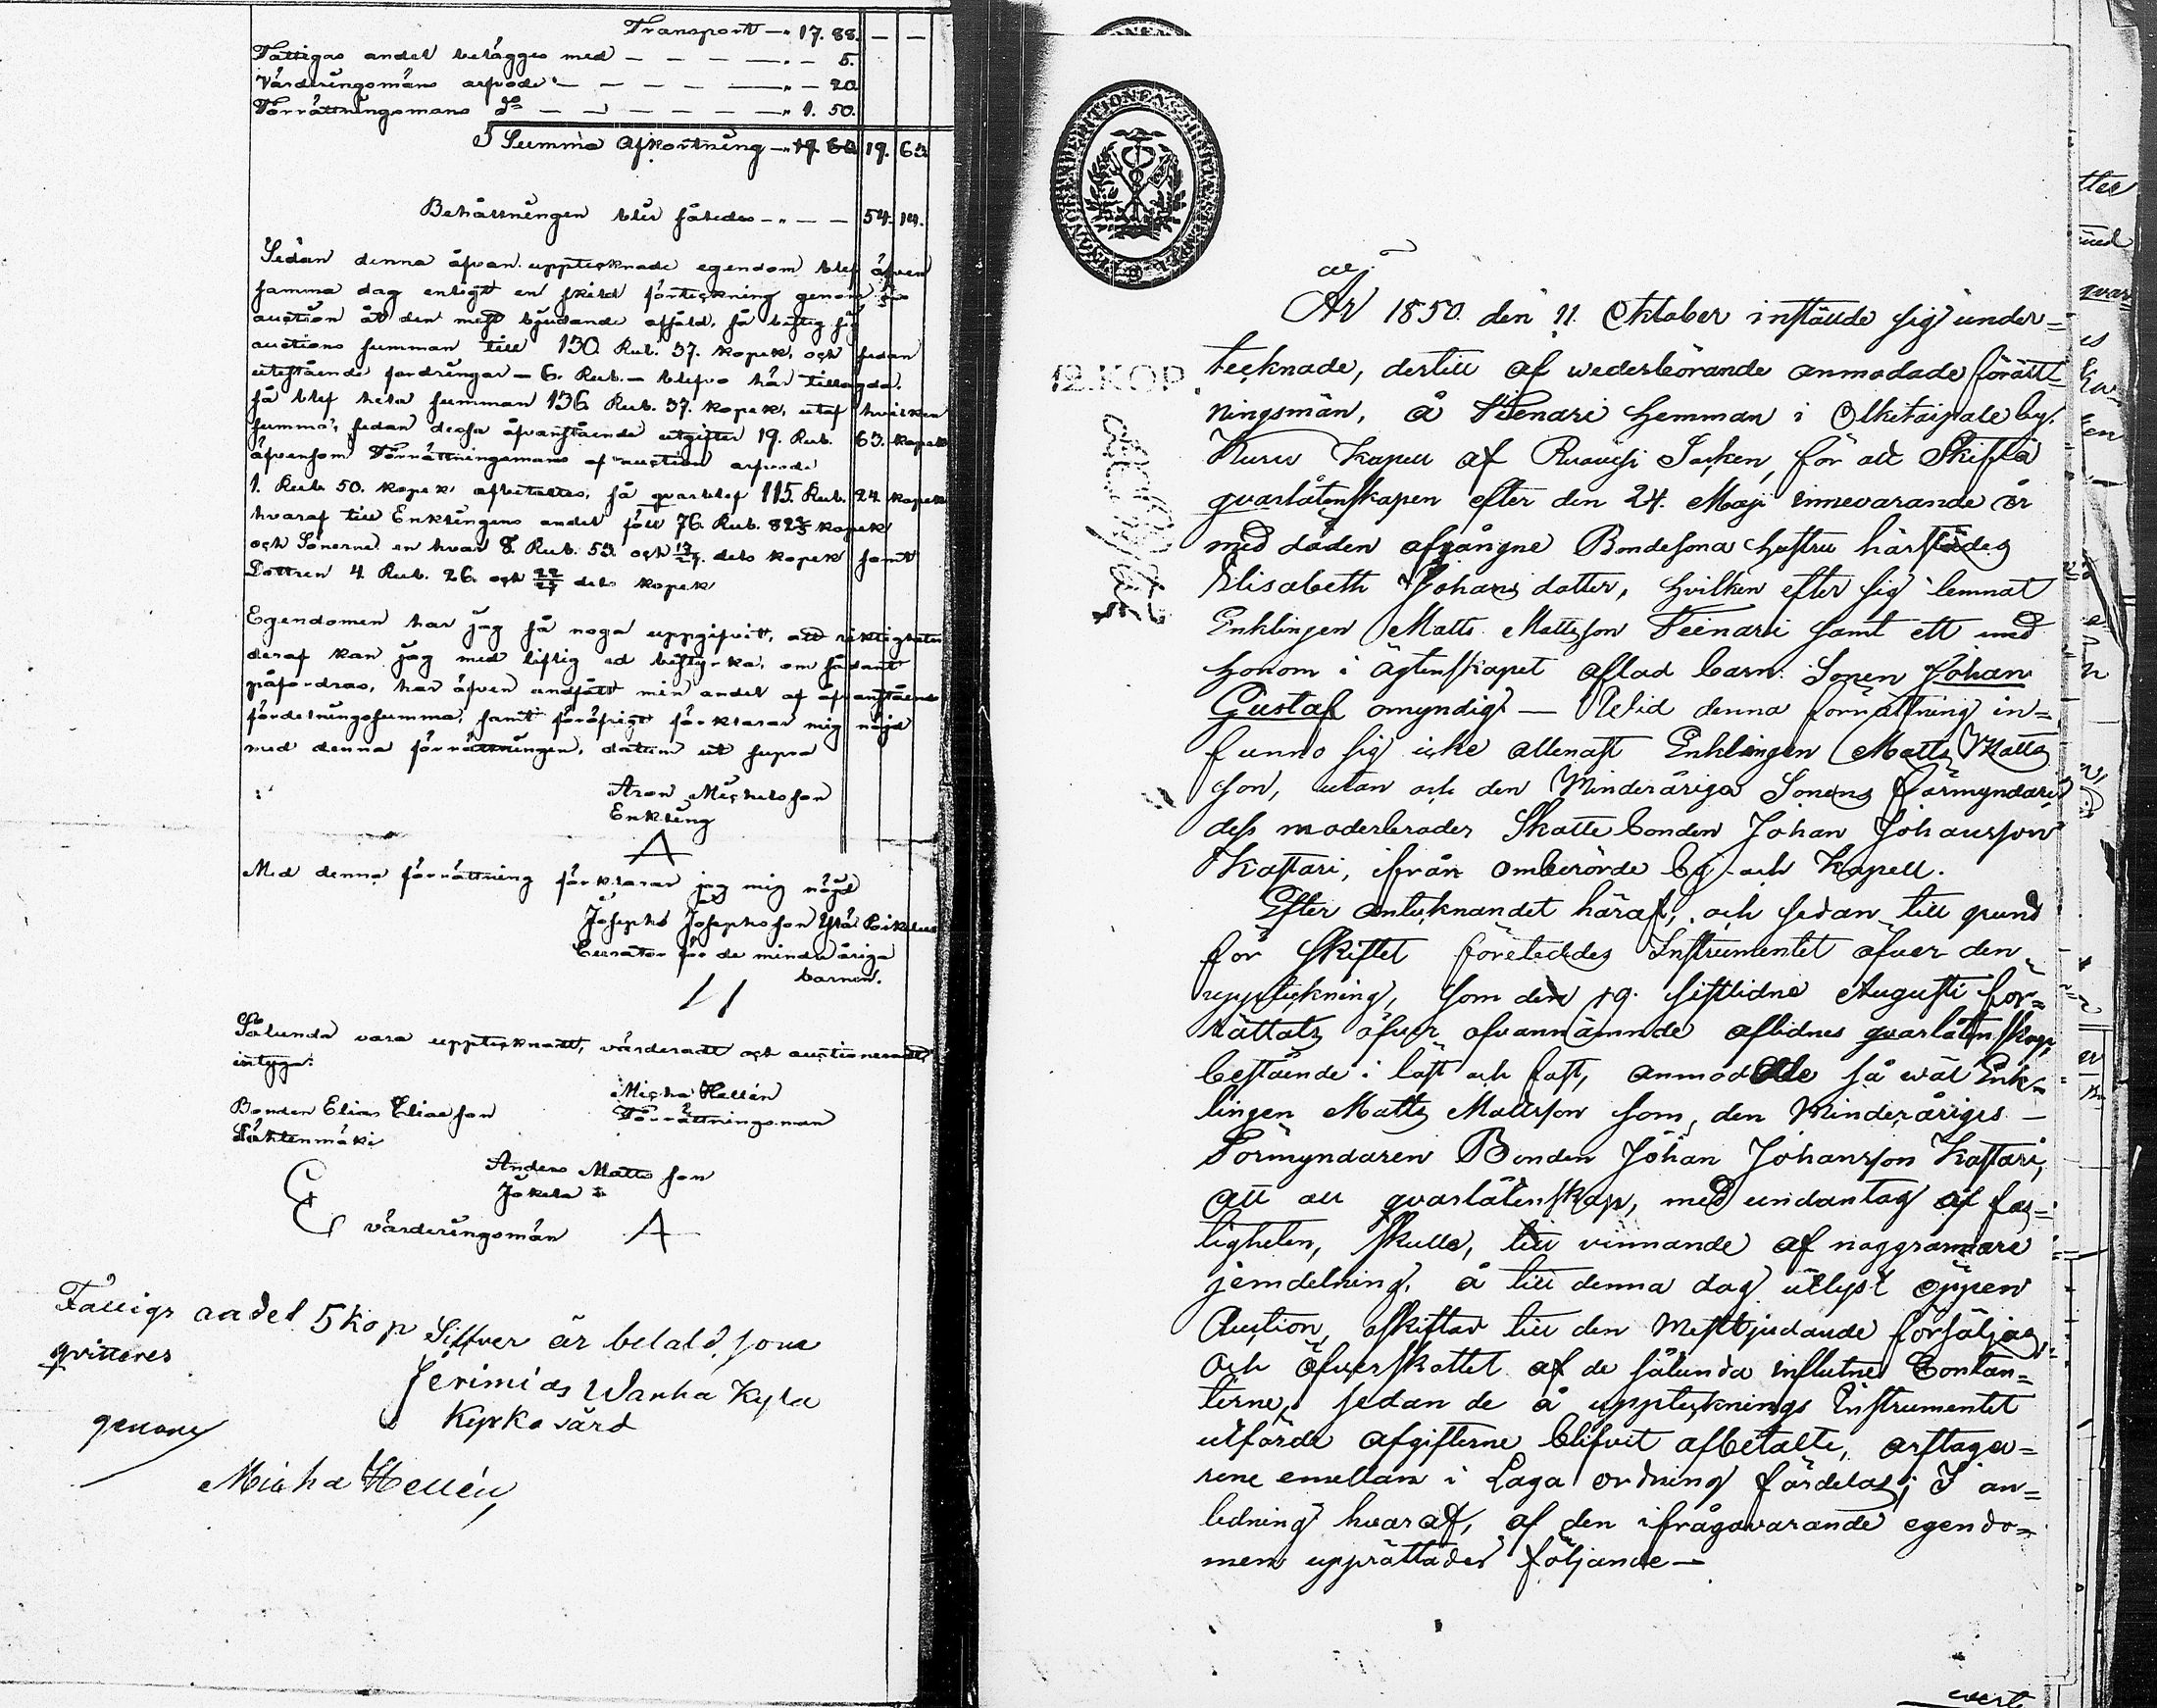 Transport —„ 17. 88. — —
Fattigas andel belägges med — — — —„ — 5.
Värderingsmäns arfvode — — — — —„ — 20
Förrättningsmans d:o — — — — — —„ 1. 50.
Summa Afkortning —„ 19. 63 19. 63
Behållningen blir således —„ — — 54. 14.
Sedan denna åfvan upptecknade egendom blef äfven
samma dag enligt en skild förteckning genom
auction åt den mest bjudande afsåld, så besteg sig
auctions summan till 130. Rub. 37. kopek, och sedan
utestående fordringar — 6. Rub. — blefvo här tillagda.
så blef hela summan 136 Rub. 37. kopek, utaf hvilken
summa, sedan dessa åfvanstående utgifter 19. Rub. 63. kopek
äfvensom Förrättningsmans af auction arfvode
1. Rub. 50. kopek afbetaltes, så qvarblef 115. Rub. 24 kopek
hvaraf till Enklingens andel föll 76. Rub. 82⅔ kopek
och Sönerne en hvar 8. Rub. 53. och 17/27 dels kopek samt
Dottren 4 Rub. 26. och 22/27 dels kopek
Egendomen har jag så noga uppgifvit, att riktigheten
deraf kan jag med liflig ed bestyrka, om sådant
påfordras, har äfven undfått min andel af åfvanstående
fördelningssumma, samt föröfrigt förklarar mig nöjd
med denna förrättningen, datum ut supra
Aron Michelsson
Enkling
A
Med denna förrättning förklarar jag mig nöjd
Josephs Josephsson Ylä
Curator för de minderåriga
barnen.
Sålunda vara upptecknadt, värderadt och auctioneradt,
intyga:
Micha Hellén
Bonden Elias Eliasson Förrättningsman
Lähtenmäki
Anders Matts son
Jokela
E värderingsmän A
Fattigs andel 5 kop Silfver är betald, som
qvitteres
Jerimias Wanha Kyla
Kyrkovärd
genom
Micha Hellén
12. KOP
År 1850. den 11. Oktober inställde sig under=
tecknade, dertill af wederbörande anmodade förrätt=
ningsmän, å Tienari hemman i Olkitaipale by.
Kuru Kapell af Ruovesi Socken, för att Skifta
qvarlåtenskapen efter den 24. Maji innevarande år
med döden afgångne Bondesona hustru härstädes
Elisabeth Johans dotter, hvilken efter sig lemnat
Enklingen Matts Mattsson Tienari samt ett med
honom i ägtenskapet aflad barn: Sonen Johan
Gustaf omyndig — Wid denna förrättning in=
funno sig icke allenast Enklingen Matts Matts
son, utan och den Minderåriga Sonens förmyndare
dess moderbroder Skattebonden Johan Johansson
Kastari, ifrån omberörde by och Kapell.
Efter antecknandet häraf, och sedan till grund
för Skiftet företeddes Instrumentet öfver den
uppteckning, som den 19. sistlidne Augusti för=
rättats öfver ofvannämnde aflidnes qvarlåtenskap,
bestående i löst och fast, anmodade så wäl Enk=
lingen Matts Mattsson som den Minderåriges
Förmyndaren Bonden Johan Johansson Kastari,
att all qvarlåtenskap, med undantag af fas=
tigheten, skulle, till vinnande af noggrannare
jemdelning, å till denna dag utlyst öppen
Auction, oskiftad till den Mestbjudande försäljas,
och öfverskottet af de sålunda influtne Contan=
terne, sedan de å upptecknings Instrumentet
utförde afgifterne blifvit afbetalte, arftaga=
rene emellan i Laga ordning fördelas; I an=
ledning hvaraf, af den ifrågavarande egendo=
men upprättades följande —